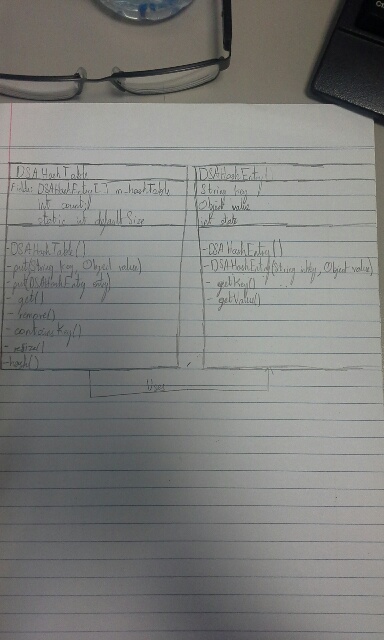 DSAHashTable
Fields: DSAHashEntry[] m_hashTable
int count;
static int defaultSize
-DSAHashTable()
-put(String key, Object value)
-put(DSAHashEntry entry)
- get()
- remove()
- containsKey()
- resize()
-hash()
DSAHashEntry
String key
Object value
int state
-DSAHashEntry()
-DSAHashEntry(String inKey, Object value)
- getKey()
- getValue()
Uses